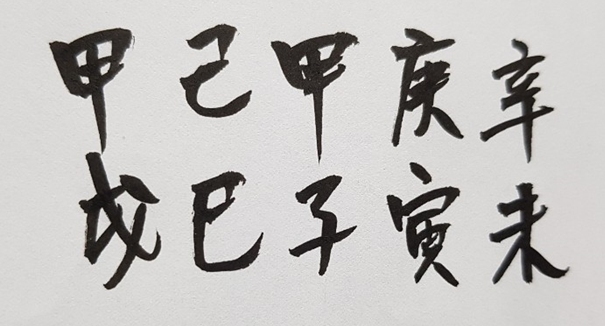 辛未
庚寅
甲子
己巳
甲戌